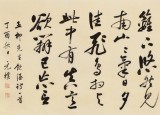 籬下悠然見
南山山氣日夕
佳飛鳥相與
此中有真意
欲辨已忘言
五柳先生飲酒詩
丁酉秋